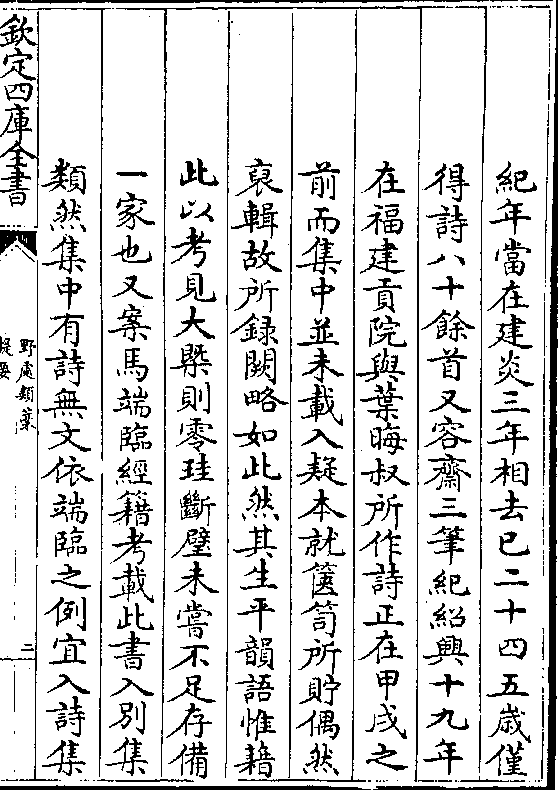 紀年當在建炎三年相去已二十四五歳僅
得詩八十餘首又容齋三筆紀紹興十九年
在福建貢院與葉晦叔所作詩正在甲戌之
前而集中並未載入疑本就篋笥所貯偶然
裒輯故所録闕略如此然其生平韻語惟藉
此以考見大槩則零珪斷璧未嘗不足存備
一家也又案馬端臨經籍考載此書入别集
類然集中有詩無文依端臨之例宜入詩集
欽定四庫全書
野處類藁
提要
二